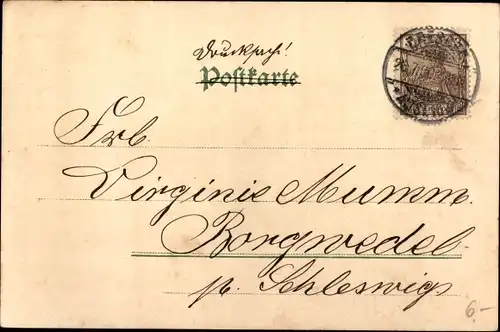 Drucksache!
Postkarte
Frl
Virginie Mumm.
Borgwedel
pr. Schleswig
6.-